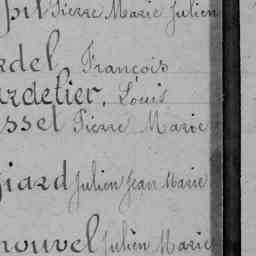 pil Pierre Marie Julien
rdel, François
ardelier, Louis
ssel Pierre Marie
iard Julien Jean Marie
nouvel Julien Marie